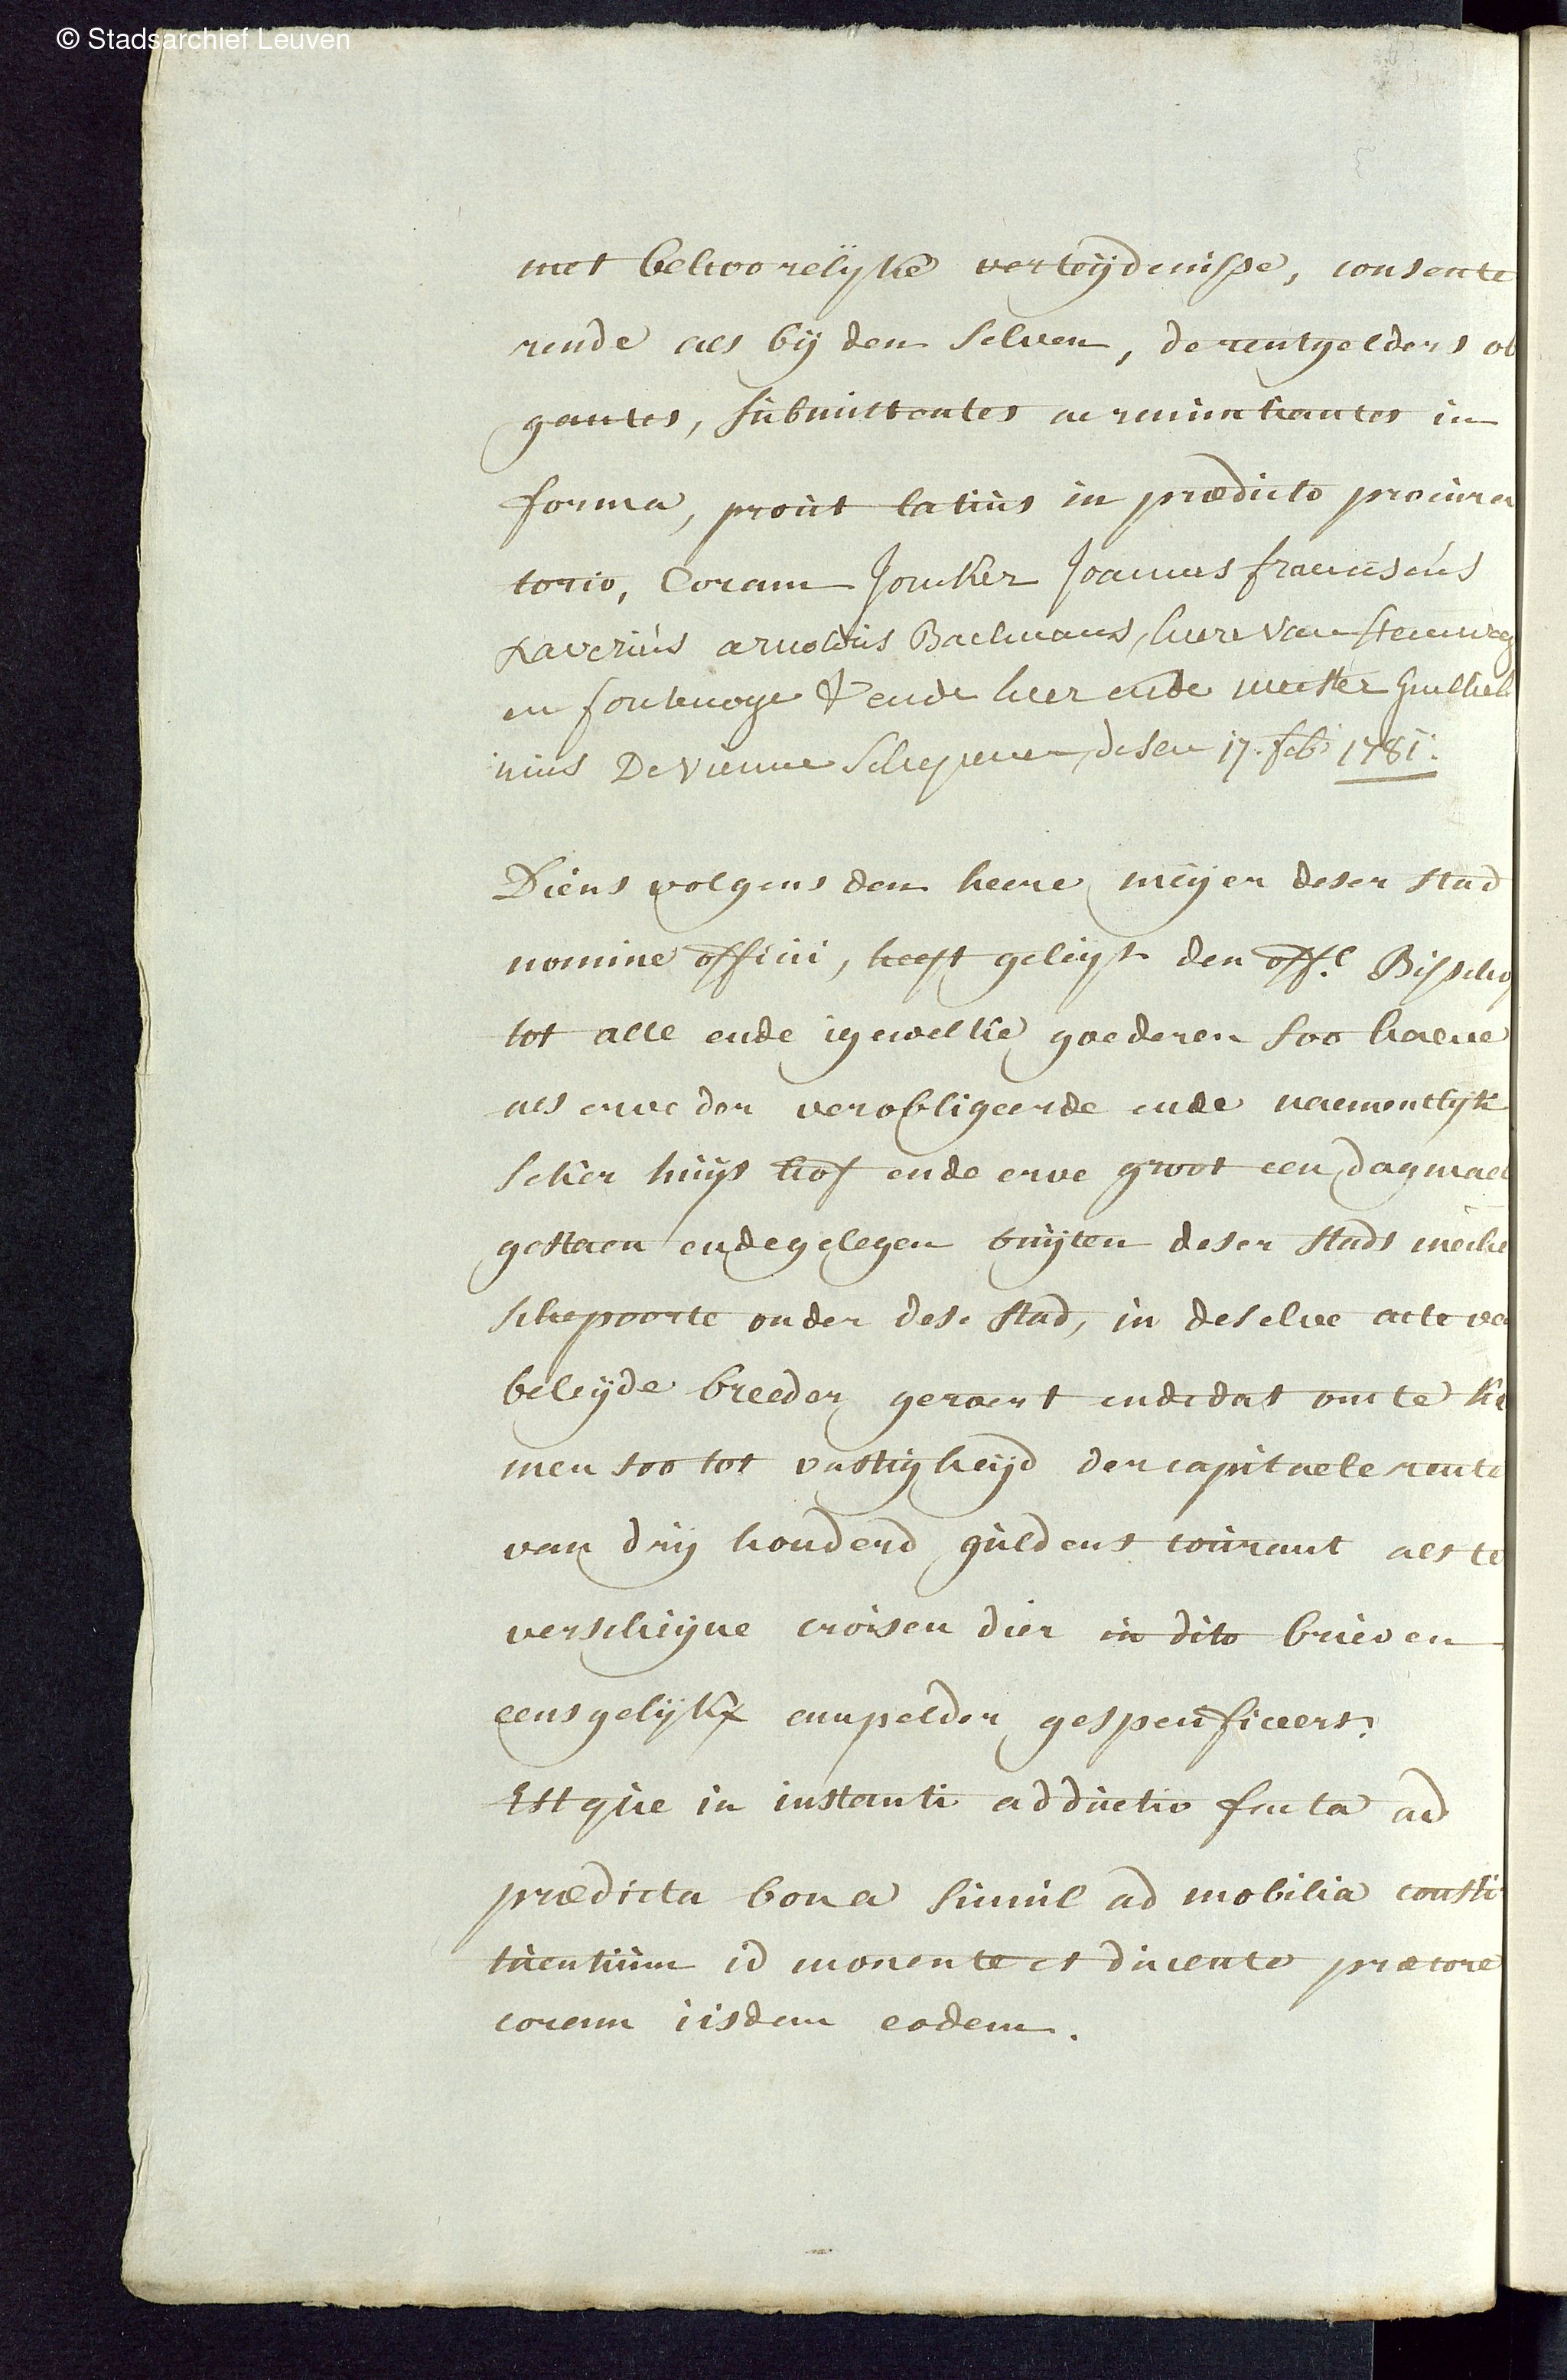 © Stadsarchief Leuven
met behoorelyke verteijdenisse, consente
rende als bij den selven, de rentgelders ob
gantes, submittentes ac renuntiantes in
forma, prout latius in prædicto procura
torio, Coram Jonker Joannes franciscus
Xaverius arnoldus Baelmans, heere van steenweg
en fontenoye & ende heer ende meester Guilliel
mus De Vienne Schepenen, desen 17. feb: 1781.
Diens volgens den heere meijer deser stad
nomine officii, heeft geleijt den off.l Bisscho
tot alle ende igewelke goederen soo haeve
als erve der verobligeerde ende naementlijk
seker huijs hof ende erve groot een dagmael
gestaen ende gelegen buijten deser stads meche
schepoorte onder dese stad, in deselve acte va
beleijde breeder geroert ende dat om te ko
men soo tot vastigheijd der capitaele rente
van drij honderd guldens courant als te
verschijne croisen dier in dito brieven
eensgelijkx simpelder gespecificeert.
Estque in instanti adductio facta ad
prædicta bona simul ad mobilia consti
tuentium id monente et ducente prætore
coram iisdem eodem.